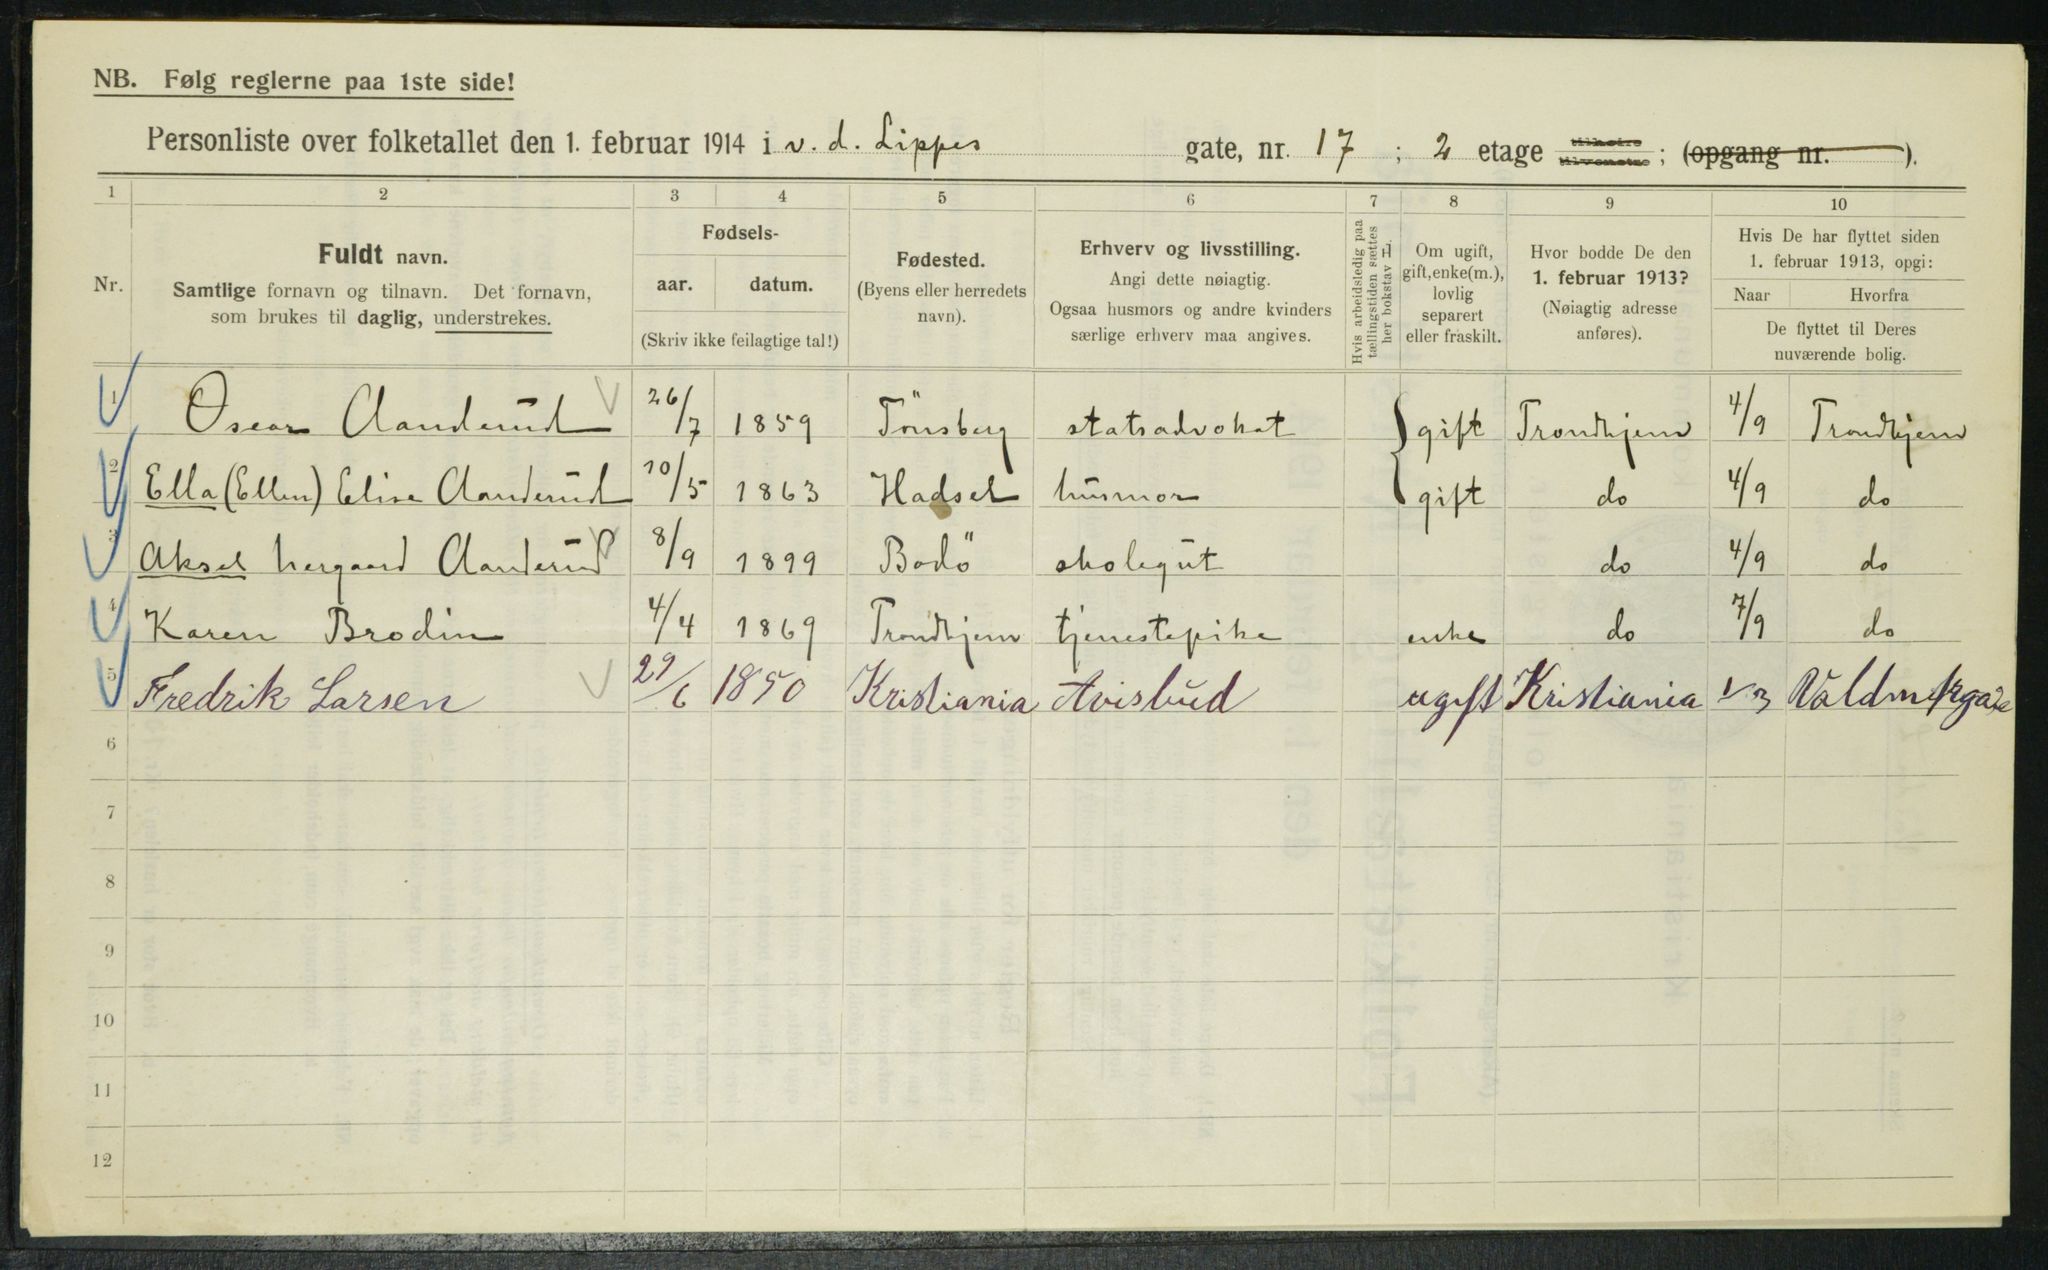 NB. Følg reglerne paa 1ste side!
Personliste over folketallet den 1. februar 1914 i v. d. Lippes gate, nr. 17 ; 2 etage tilhøire tilvenstre ; (opgang nr. ).
1 2 3 4 5 6 7 8 9 10
Nr.
Fuldt navn.
Samtlige fornavn og tilnavn. Det fornavn,
som brukes til daglig, understrekes.
Fødsels-
aar. datum.
(Skriv ikke feilagtige tal!)
Fødested.
(Byens eller herredets
navn).
Erhverv og livsstilling.
Angi dette nøiagtig.
Ogsaa husmors og andre kvinders
særlige erhverv maa angives.
Hvis arbeidsledig paa
tællingstiden sættes
her bokstav
Om ugift,
gift, enke(m.),
lovlig
separert
eller fraskilt.
Hvor bodde De den
1. februar 1913?
(Nøiagtig adresse
anføres).
Hvis De har flyttet siden
1. februar 1913, opgi:
Naar Hvorfra
De flyttet til Deres
nuværende bolig.
1 Oscar Aanderud 26/7 1859 Tönsberg statsadvokat gift Trondhjem 4/9 Trondhjem
2 Ella (Ellen) Elise Aanderud 10/5 1863 Hadsel husmor gift do 4/9 do
3 Aksel Aanderud 8/9 1899 Bodö skolegut do 4/9 do
4 Karen Brodin 4/4 1869 Trondhjem tjenestepike enke do 7/9 do
5 Fredrik Larsen 29/6 1850 Kristiania Avisbud ugift Kristiania
6
7
8
9
10
11
12